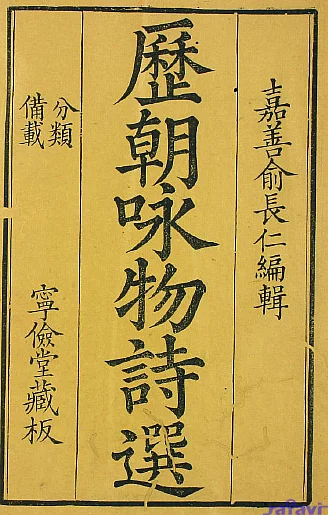 嘉善俞長仁編輯
歷朝咏物詩選
分類
備載
寧儉堂藏板
Jafavi